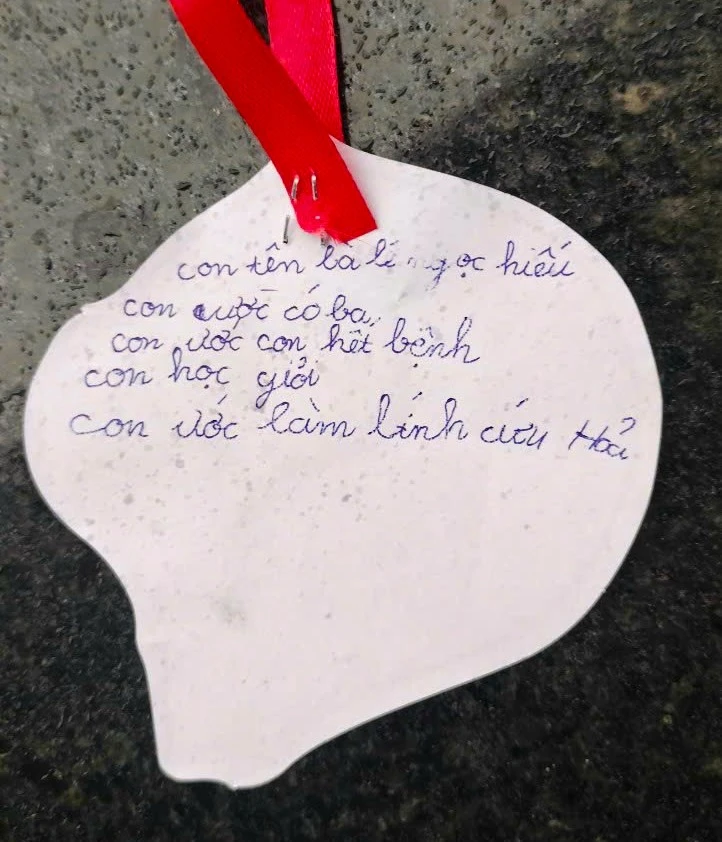 con tên là lê ngọc hiếu
con ước có ba
con ước con hết bệnh
con học giỏi
con ước làm lính cứu Hoả